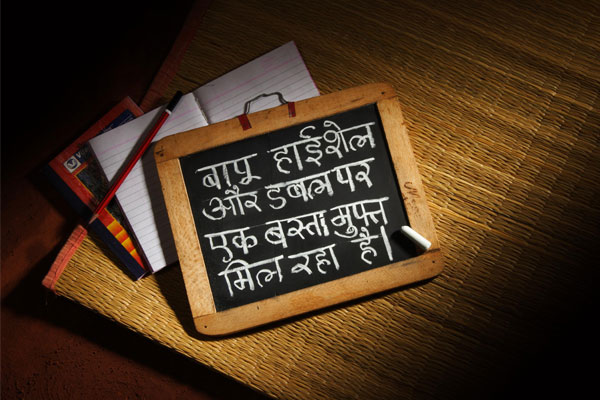 बापू हाईशेल
और डबल पर
एक बस्ता मुफ्त
मिल रहा है।